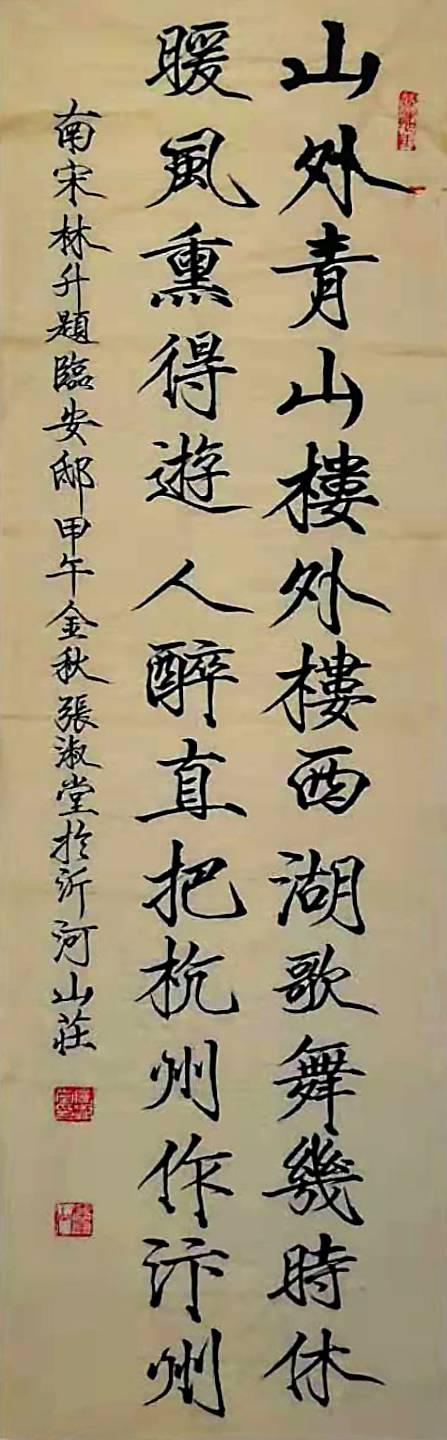 山外青山樓外樓西湖歌舞幾時休
暖風熏得遊人醉直把杭州作汴州
南宋林升題臨安邸甲午金秋張淑堂於沂河山莊